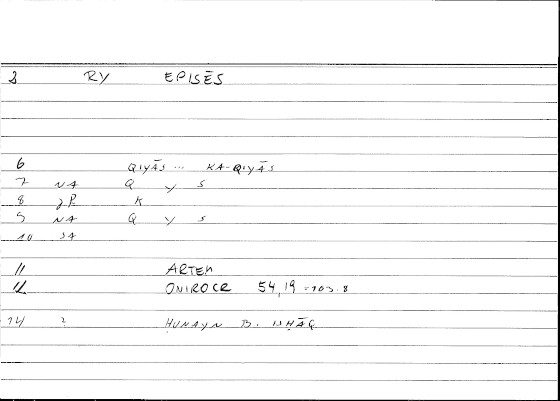 3 RY EPISĒS
6 QIYĀS ... KA-QIYĀS
7 NA Q Y S
8 K
9 NA Q Y S
10 SA
11 ARTEM
12 ONIROCR 54,19 = 103.8
14 ? ḤUNAYN B. ISḤĀQ